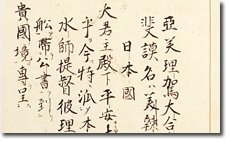 亞美理駕大合
斐謨名ハ美辣
日本國
大君主殿下平安
乎今特派本
水師提督彼理
船帶公書到
貴國境專呈